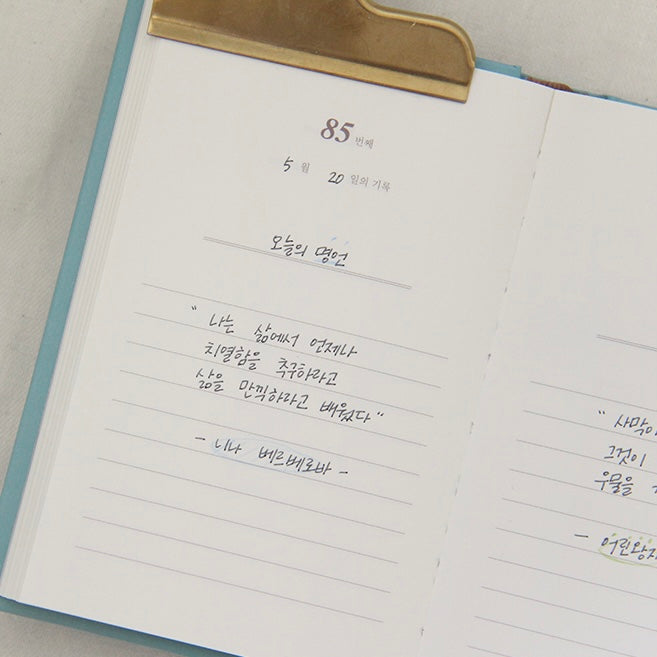 85 번째
5 월 20 일의 기록
오늘의 명언
" 나는 삶에서 언제나
치열함을 추구하라고
삶을 만끽하라고 배웠다"
- 니나 베르베로바 -
" 사막이
그것이
우물을
- 어린왕자